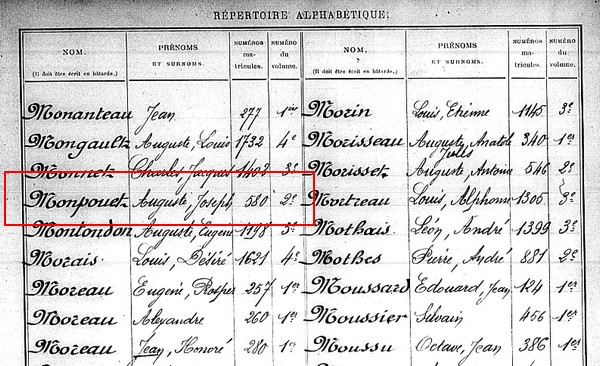 RÉPERTOIRE ALPHABÉTIQUE.
NOM. PRÉNOMS NUMÉROS NUMÉRO NOM. PRÉNOMS NUMÉROS NUMÉRO
ET SURNOMS. matricules. du volume. ? ET SURNOMS. matricules. du volume.
(Il doit être écrit en bâtarde.) (Il doit être écrit en bâtarde.)
Monanteau Jean 277 1er Morin Louis, Etienne 1145 3e
Mongault Auguste, Louis 1732 4e Morisseau Auguste, Anatole 340 1er
Jules
Monnet Charles Jacques 1402 3e Morisset Auguste, Antoine 546 2e
Monpouet Auguste, Joseph 580 2e Mortreau Louis, Alphonse 1306 3e
Montondon Auguste, Eugène 1198 3e Mothais Léon, André 1399 3e
Morais Louis, Désiré 1621 4e Mothes Pierre, André 881 2e
Moreau Eugène, Prosper 257 1er Moussard Edouard, Jean 124 1er
Moreau Alexandre 260 1er Moussier Silvain 456 1er
Moreau Jean, Honoré 280 1er Moussu Octave, Jean 386 1er